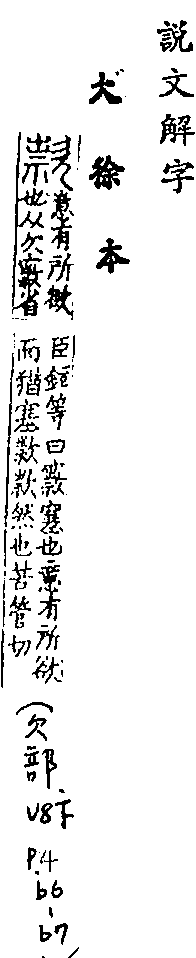 說文解字
大徐本
意有所欲
也从欠省
臣鉉等曰塞也意有所欲
而猶塞款款然也苦管切
(欠部
V8下
P.4
b6-
b7